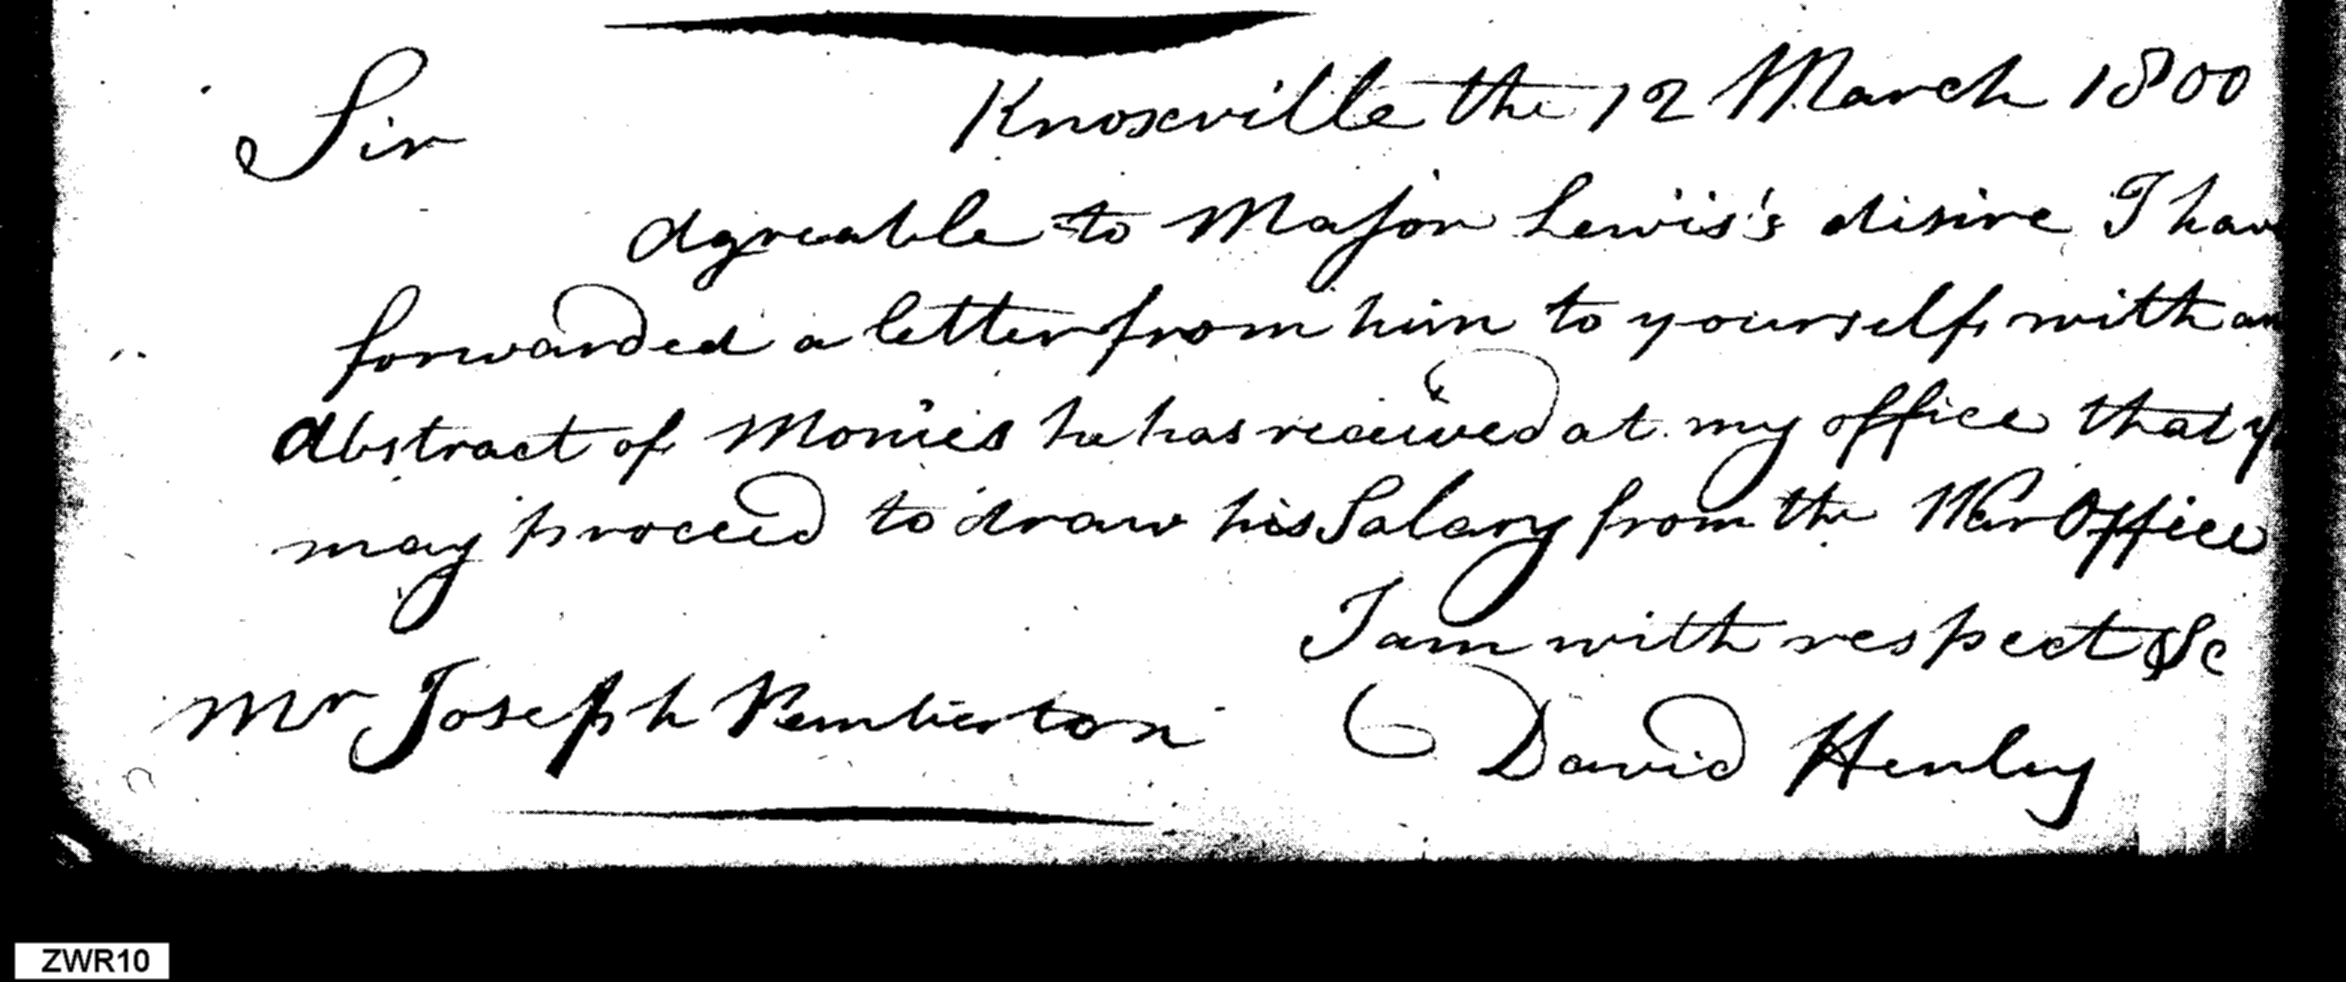 Knoxville the 12 March 1800
Sir
Agreable to Major Lewis's disire I hav
forwarded a letter from him to yourself, with an
Abstract of Monies he has received at my office that y
may proceed to draw his Salary from the War Office
I am with respect &c
Mr Joseph Pemberton
David Henley
ZWR10